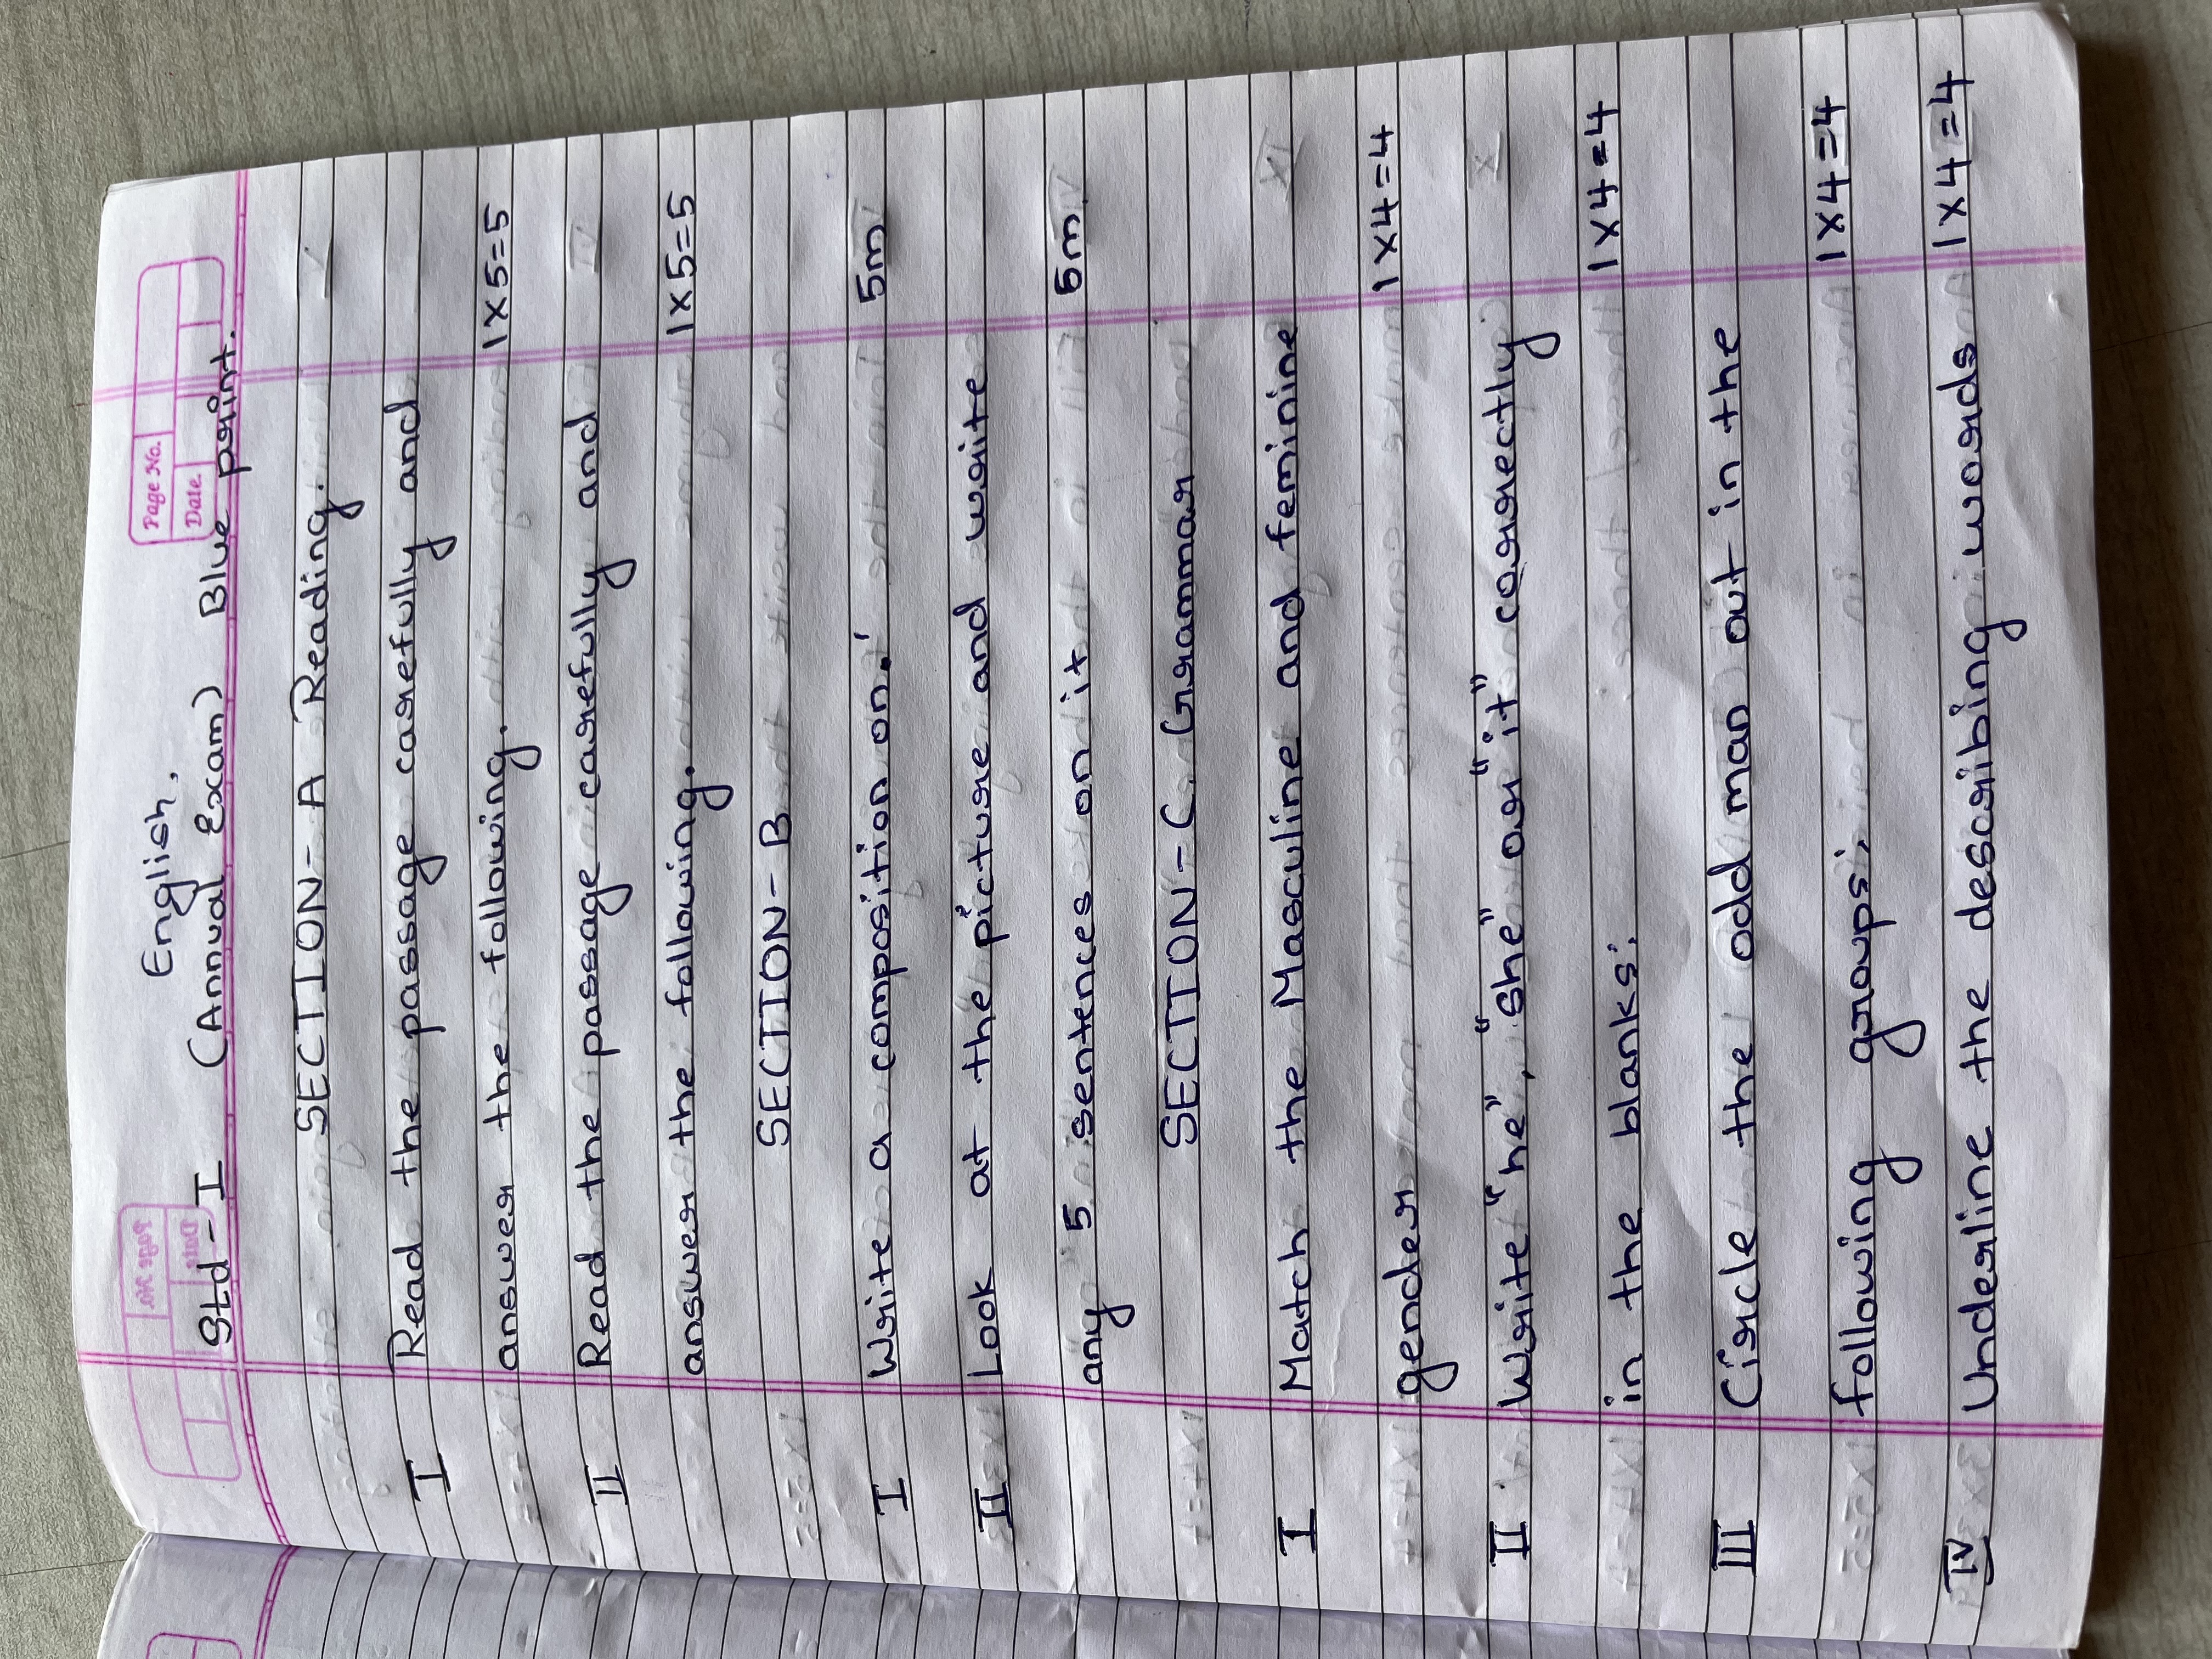 Page No.
Date.
English.
Std - I (Annual Exam) Blue print.
SECTION - A Reading.
I Read the passage carefully and
answer the following. 1x5=5
II Read the passage carefully and
answer the following. 1x5=5
SECTION - B
I Write a composition on. 5m
II Look at the picture and write
any 5 sentences on it 5m
SECTION - C. Grammar
I Match the Masculine and feminine
gender 1x4=4
II Write "he", "she" or "it" correctly
in the blanks: 1x4=4
III Circle the odd man out in the
following groups: 1x4=4
IV Underline the describing words 1x4=4